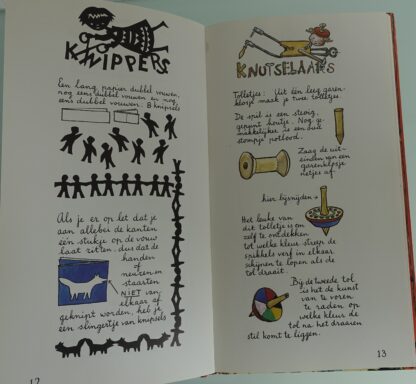 KNIPPERS
Een lang papier dubbel vouwen,
nog eens dubbel vouwen en nog
eens dubbel vouwen. 8 knipsels
Als je er op let dat je
aan allebei de kanten
een stukje op de vouw
laat zitten, dus dat de
handen
of
neuzen en
staarten
NIET van
elkaar af
geknipt worden, heb je
een slingertje van knipsels
12
KNUTSELAARS
Tolletjes: Uit één leeg garen-
klosje maak je twee tolletjes.
De spil is een stevig,
gepunt houtje. Nog ge-
makkelijker is een oud
stompje potlood.
Zaag de uit-
einden van een
garenklosje
netjes af.
hier bijsnijden
Het leuke van
dit tolletje is om
zelf te ontdekken
tot welke kleur streep de
spikkels verf in elkaar
schijnen te lopen als de
tol draait.
Bij de tweede tol
is het de kunst
van te voren
te raden op
welke kleur de
tol na het draaien
stil komt te liggen.
13